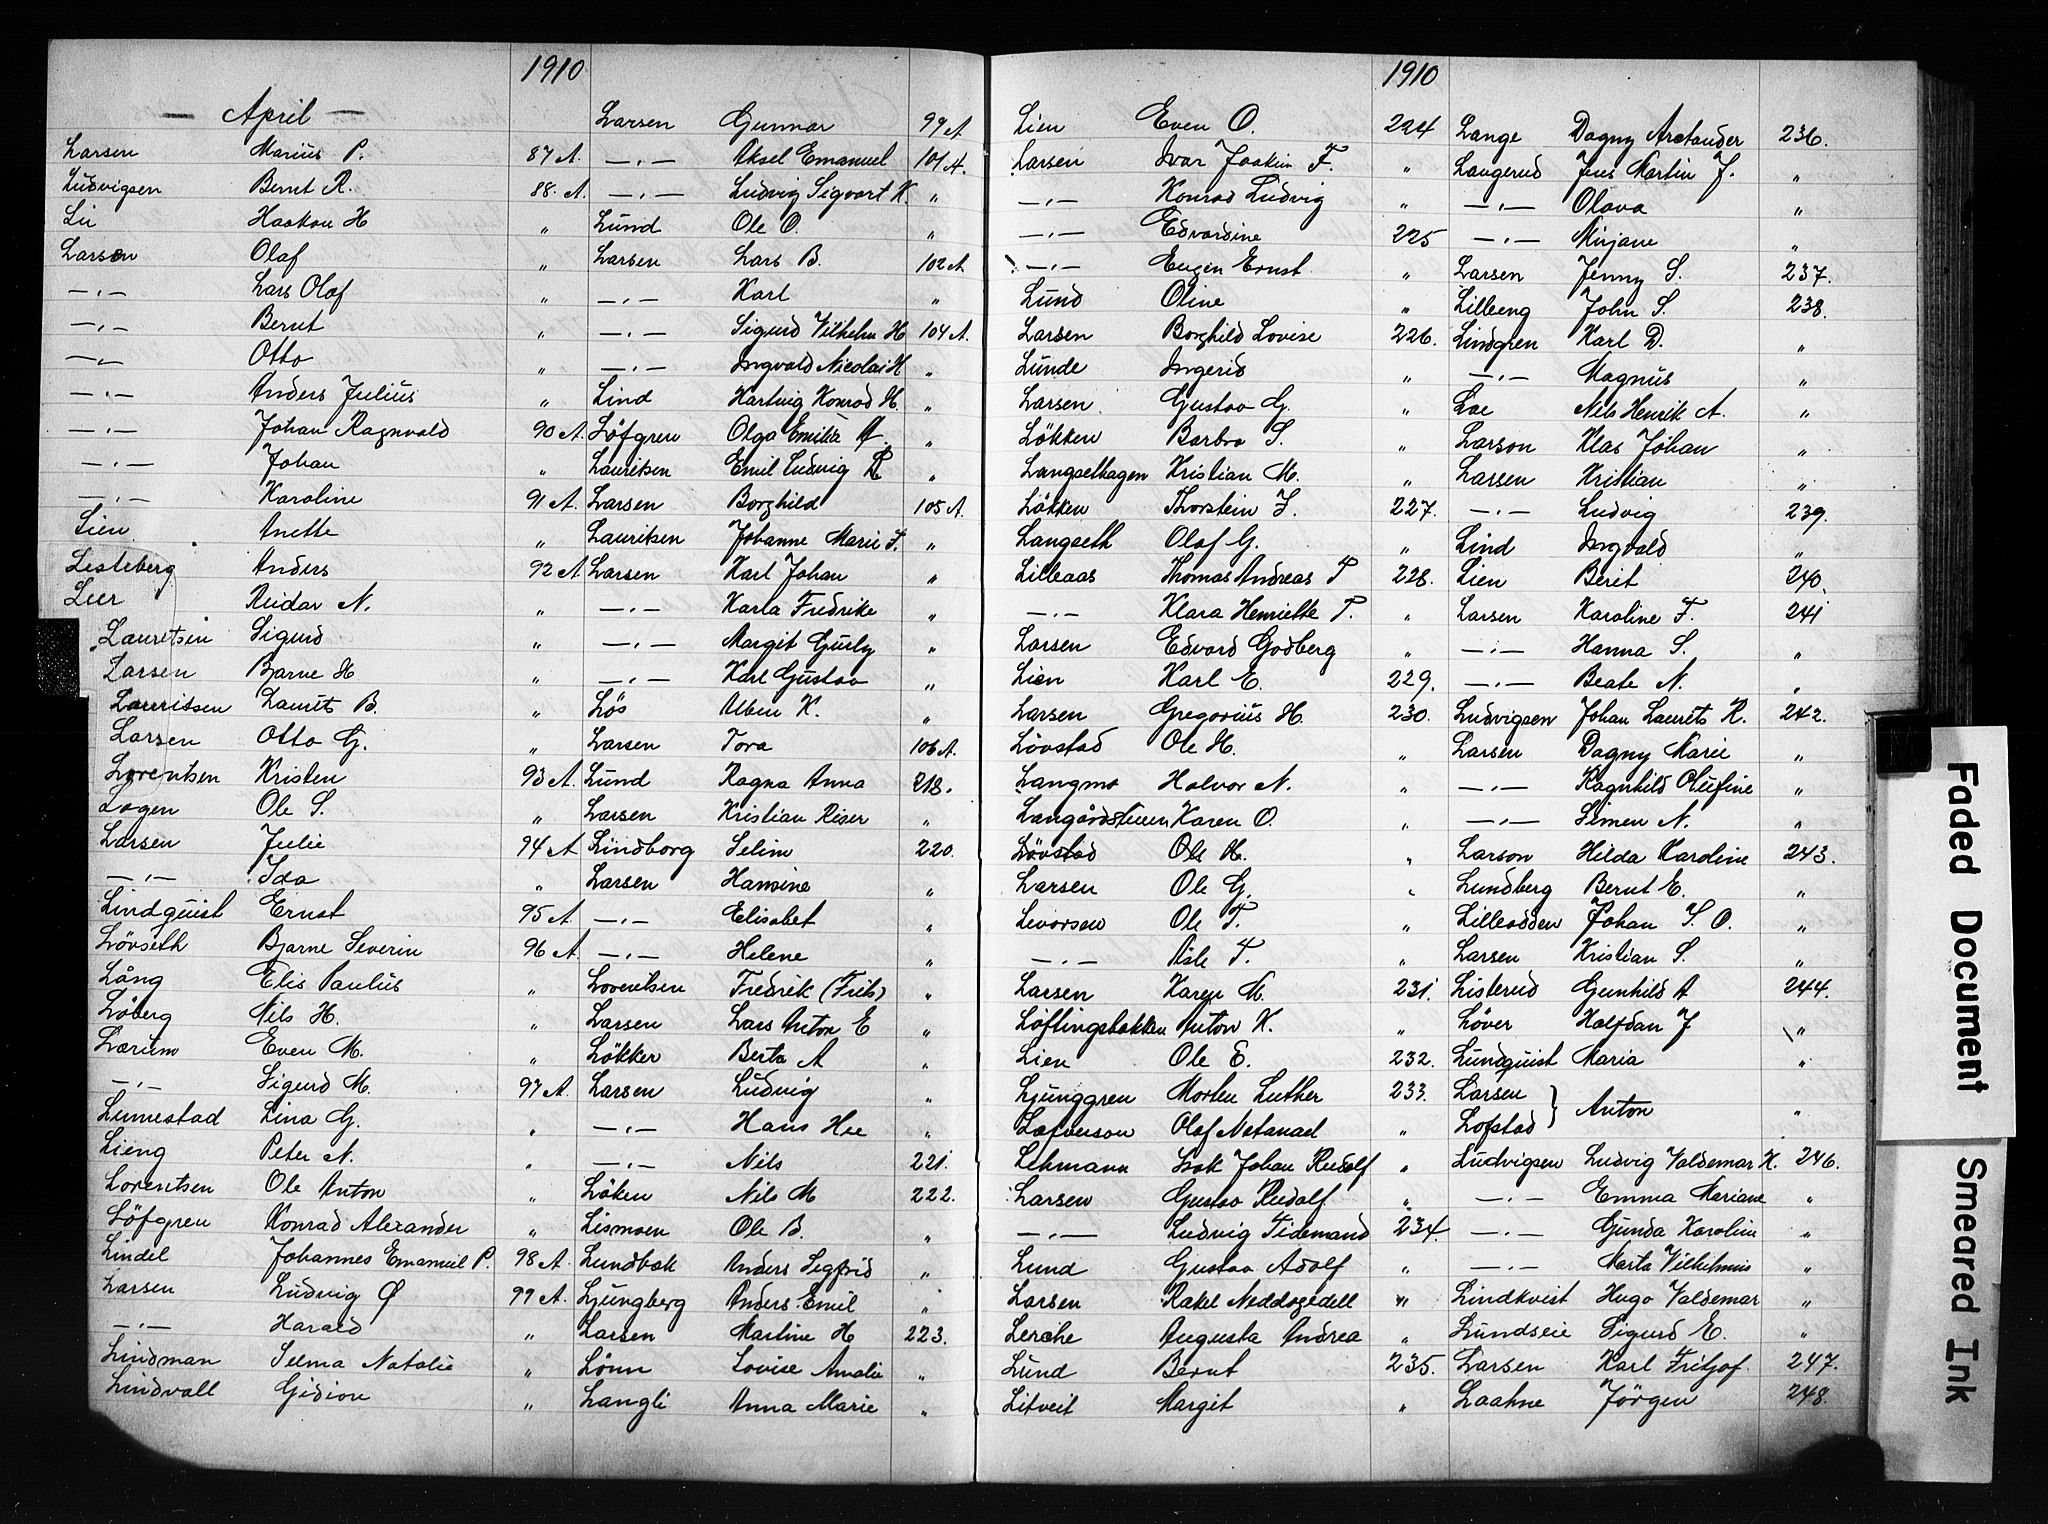 1910
— April —
Larsen Marius P. 87 A.
Ludvigsen Bernt R. 88. A
Li Haakon H „
Larsen Olaf „
—„— Lars Olaf „
—„— Bernt „
—„— Otto „
—„— Anders Julius „
—„— Johan Ragnvald 90 A.
—„— Johan „
—„— Karoline 91 A.
Lien Anette „
Lesteberg Anders 92 A
Leer Reidar N. „
Lauretsen Sigurd „
Larsen Bjarne H „
Lauritsen Laurits B. „
Larsen Otto G. „
Lorentsen Kristen 93 A.
Lagen Ole S. „
Larsen Julie 94 A
—„— Ida „
Lindquist Ernst 95 A
Lövseth Bjarne Severin 96 A
Lång Elis Paulus „
Löberg Nils H. „
Lærum Even M. „
—„— Sigurd M. 97 A.
Lunestad Lina G. „
Lieng Peter N. „
Lorentsen Ole Anton „
Löfgren Konrad Alexander „
Lindel Johannes Emanuel P. 98 A.
Larsen Ludvig Ø 99 A.
—„— Harald „
Lindman Selma Natalie „
Lindvall Gidion „
Larsen Gunnar 99 A
—„— Aksel Emanuel 101 A.
—„— Ludvig Sigvart K. „
Lund Ole O. „
Larsen Lars B. 102 A
—„— Karl „
—„— Sigurd Vilhelm H 104 A.
—„— Ingvald Nicolai H „
Lind Hartvig Konrad H. „
Löfgren Olga Emilia A. „
Lauritsen Emil Ludvig R „
Larsen Borghild 105 A.
Lauritsen Johanne Marie F. „
Larsen Karl Johan „
—„— Karla Fredrike „
—„— Margit Gurly „
—„— Karl Gustav „
Lös Alben K. „
Larsen Tora 106 A.
Lund Ragna Anna 218.
Larsen Kristian Riser „
Lindborg Selim 220.
Larsen Hansine „
—„— Elisabet „
—„— Helene „
Lorentsen Fredrik (Frits) „
Larsen Lars Anton E „
Lökker Berta A „
Larsen Ludvig „
—„— Hans Hee „
—„— Nils 221.
Löken Nils M 222.
Lismoen Ole B. „
Lundbak Anders Segfrid „
Ljungberg Anders Emil „
Larsen Martine H 223.
Lönn Lovise Amalie „
Langli Anna Marie „
1910
Lien Even O. 224
Larsen Ivar Joakim F. „
—„— Konrad Ludvig „
—„— Edvardine 225
—„— Eugen Ernst „
Lund Oline „
Larsen Borghild Lovise 226.
Lunde Ingerid „
Larsen Gustav G. „
Lökken Barbro S. „
Langselhagen Kristian M. „
Lökken Thorstein J. 227.
Langseth Olaf G. „
Lilleaas Thomas Andreas T 228.
—„— Klara Henriette T. „
Larsen Edvard Godberg „
Lien Karl E. 229.
Larsen Gregorius H. 230.
Lövstad Ole H. „
Langmo Halvor N. „
Langårdstuen Karen O. „
Lövstad Ole H. „
Larsen Ole G. „
Levorsen Ole T. „
—„— Asle T. „
Larsen Karen M. 231.
Löftingsbakken Anton K. „
Lien Ole E. 232.
Ljunggren Morten Luther 233.
Lafverson Olof Natanael „
Lehmann Isak Johan Rudolf „
Larsen Gustav Rudolf „
—„— Ludvig Tidemand 234.
Lund Gustav Adolf „
Larsen Rakel Neddogedell „
Lerche Augusta Andrea „
Lund Bernt 235.
Litveit Margit „
Lange Dagny Arctander 236.
Langerud Jens Martin J. „
—„— Olava „
—„— Mirjane „
Larsen Jenny S. 237.
Lilleeng John S. 238.
Lindgren Karl D. „
—„— Magnus „
Loe Nils Henrik A. „
Larson Klas Johan „
Larsen Kristian „
—„— Ludvig 239.
Lind Ingvald „
Lien Berit 240.
Larsen Karoline F. 241
—„— Hanna S. „
—„— Beate N. „
Ludvigsen Johan Laurits R. 242.
Larsen Dagny Marie „
—„— Ragnhild Olufine „
—„— Simen N. „
Larson Hilda Karoline 243.
Lundberg Bernt E. „
Lilleodden Johan S. O. „
Larsen Kristian S. „
Listerud Gunhild A 244.
Löver Halfdan J „
Lundquist Maria „
Larsen } Anton „
Lofstad
Ludvigsen Ludvig Valdemar K. 246.
—„— Emma Mariane „
—„— Gunda Karoline „
—„— Marta Vilhelmine „
Lindkvist Hugo Valdemar „
Lundseie Sigurd E. „
Larsen Karl Fritjof 247.
Laahne Jörgen 248.
Faded Document Smeared Ink